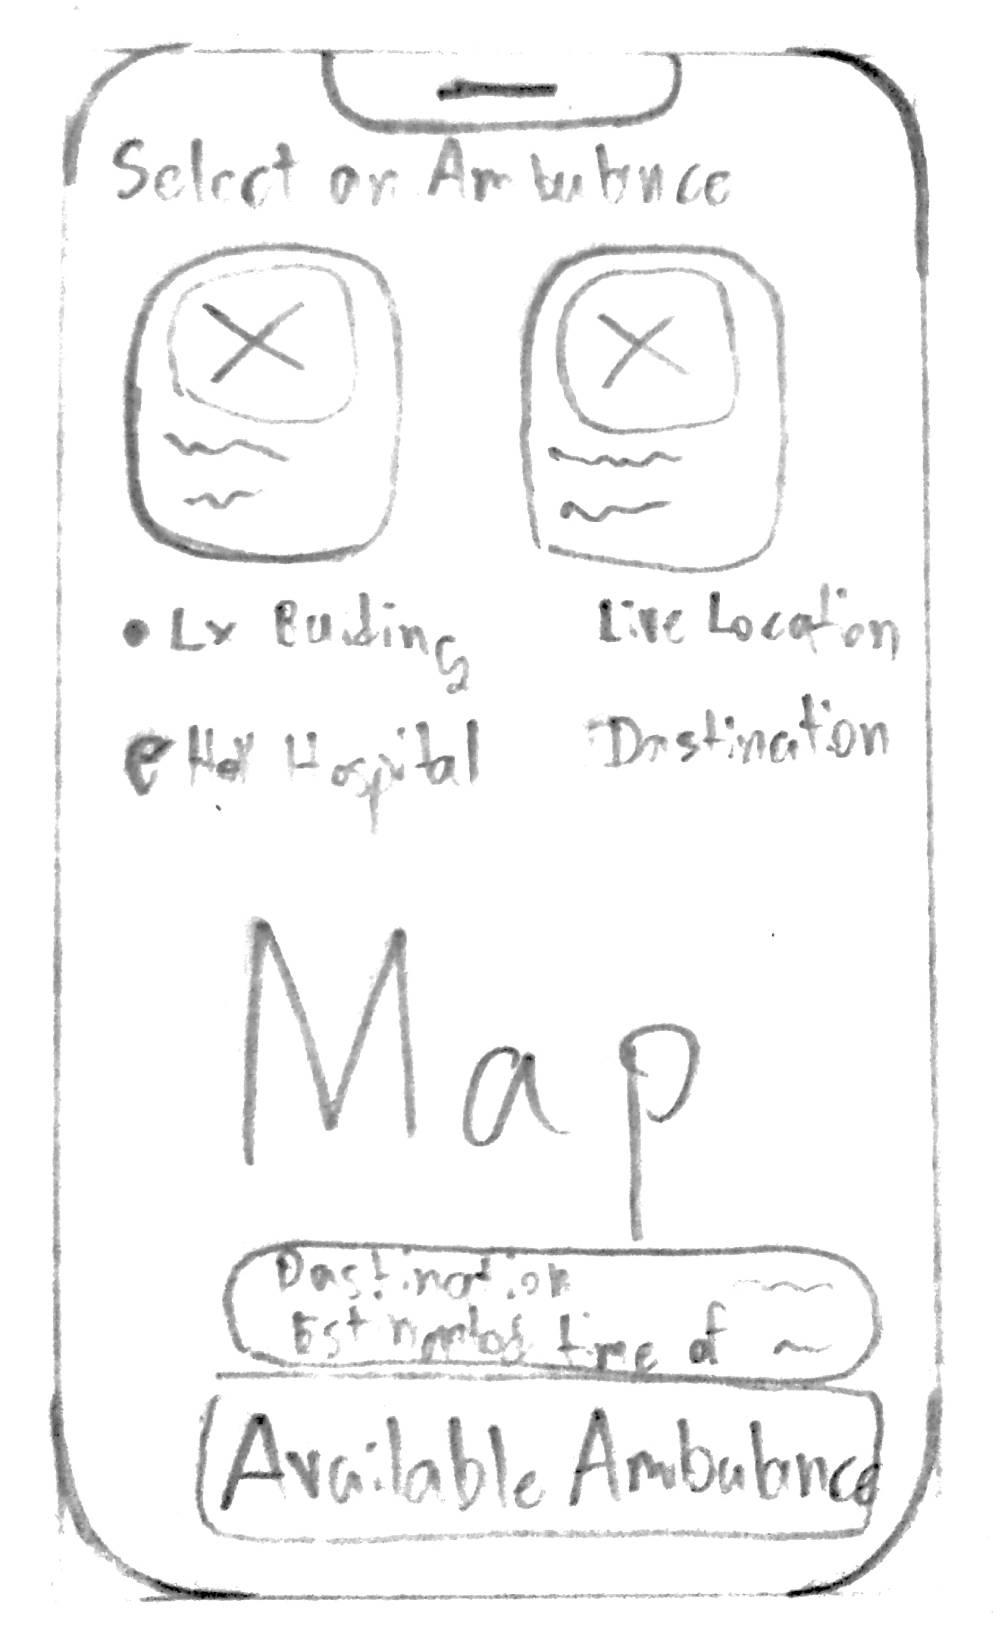 Select an Ambubnce
Lx Buiding Live Location
Hospital Dastination
Map
Dastination
time of
Available Ambubnce